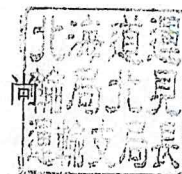 北海道運
輸局北見
運輸支局長
尚